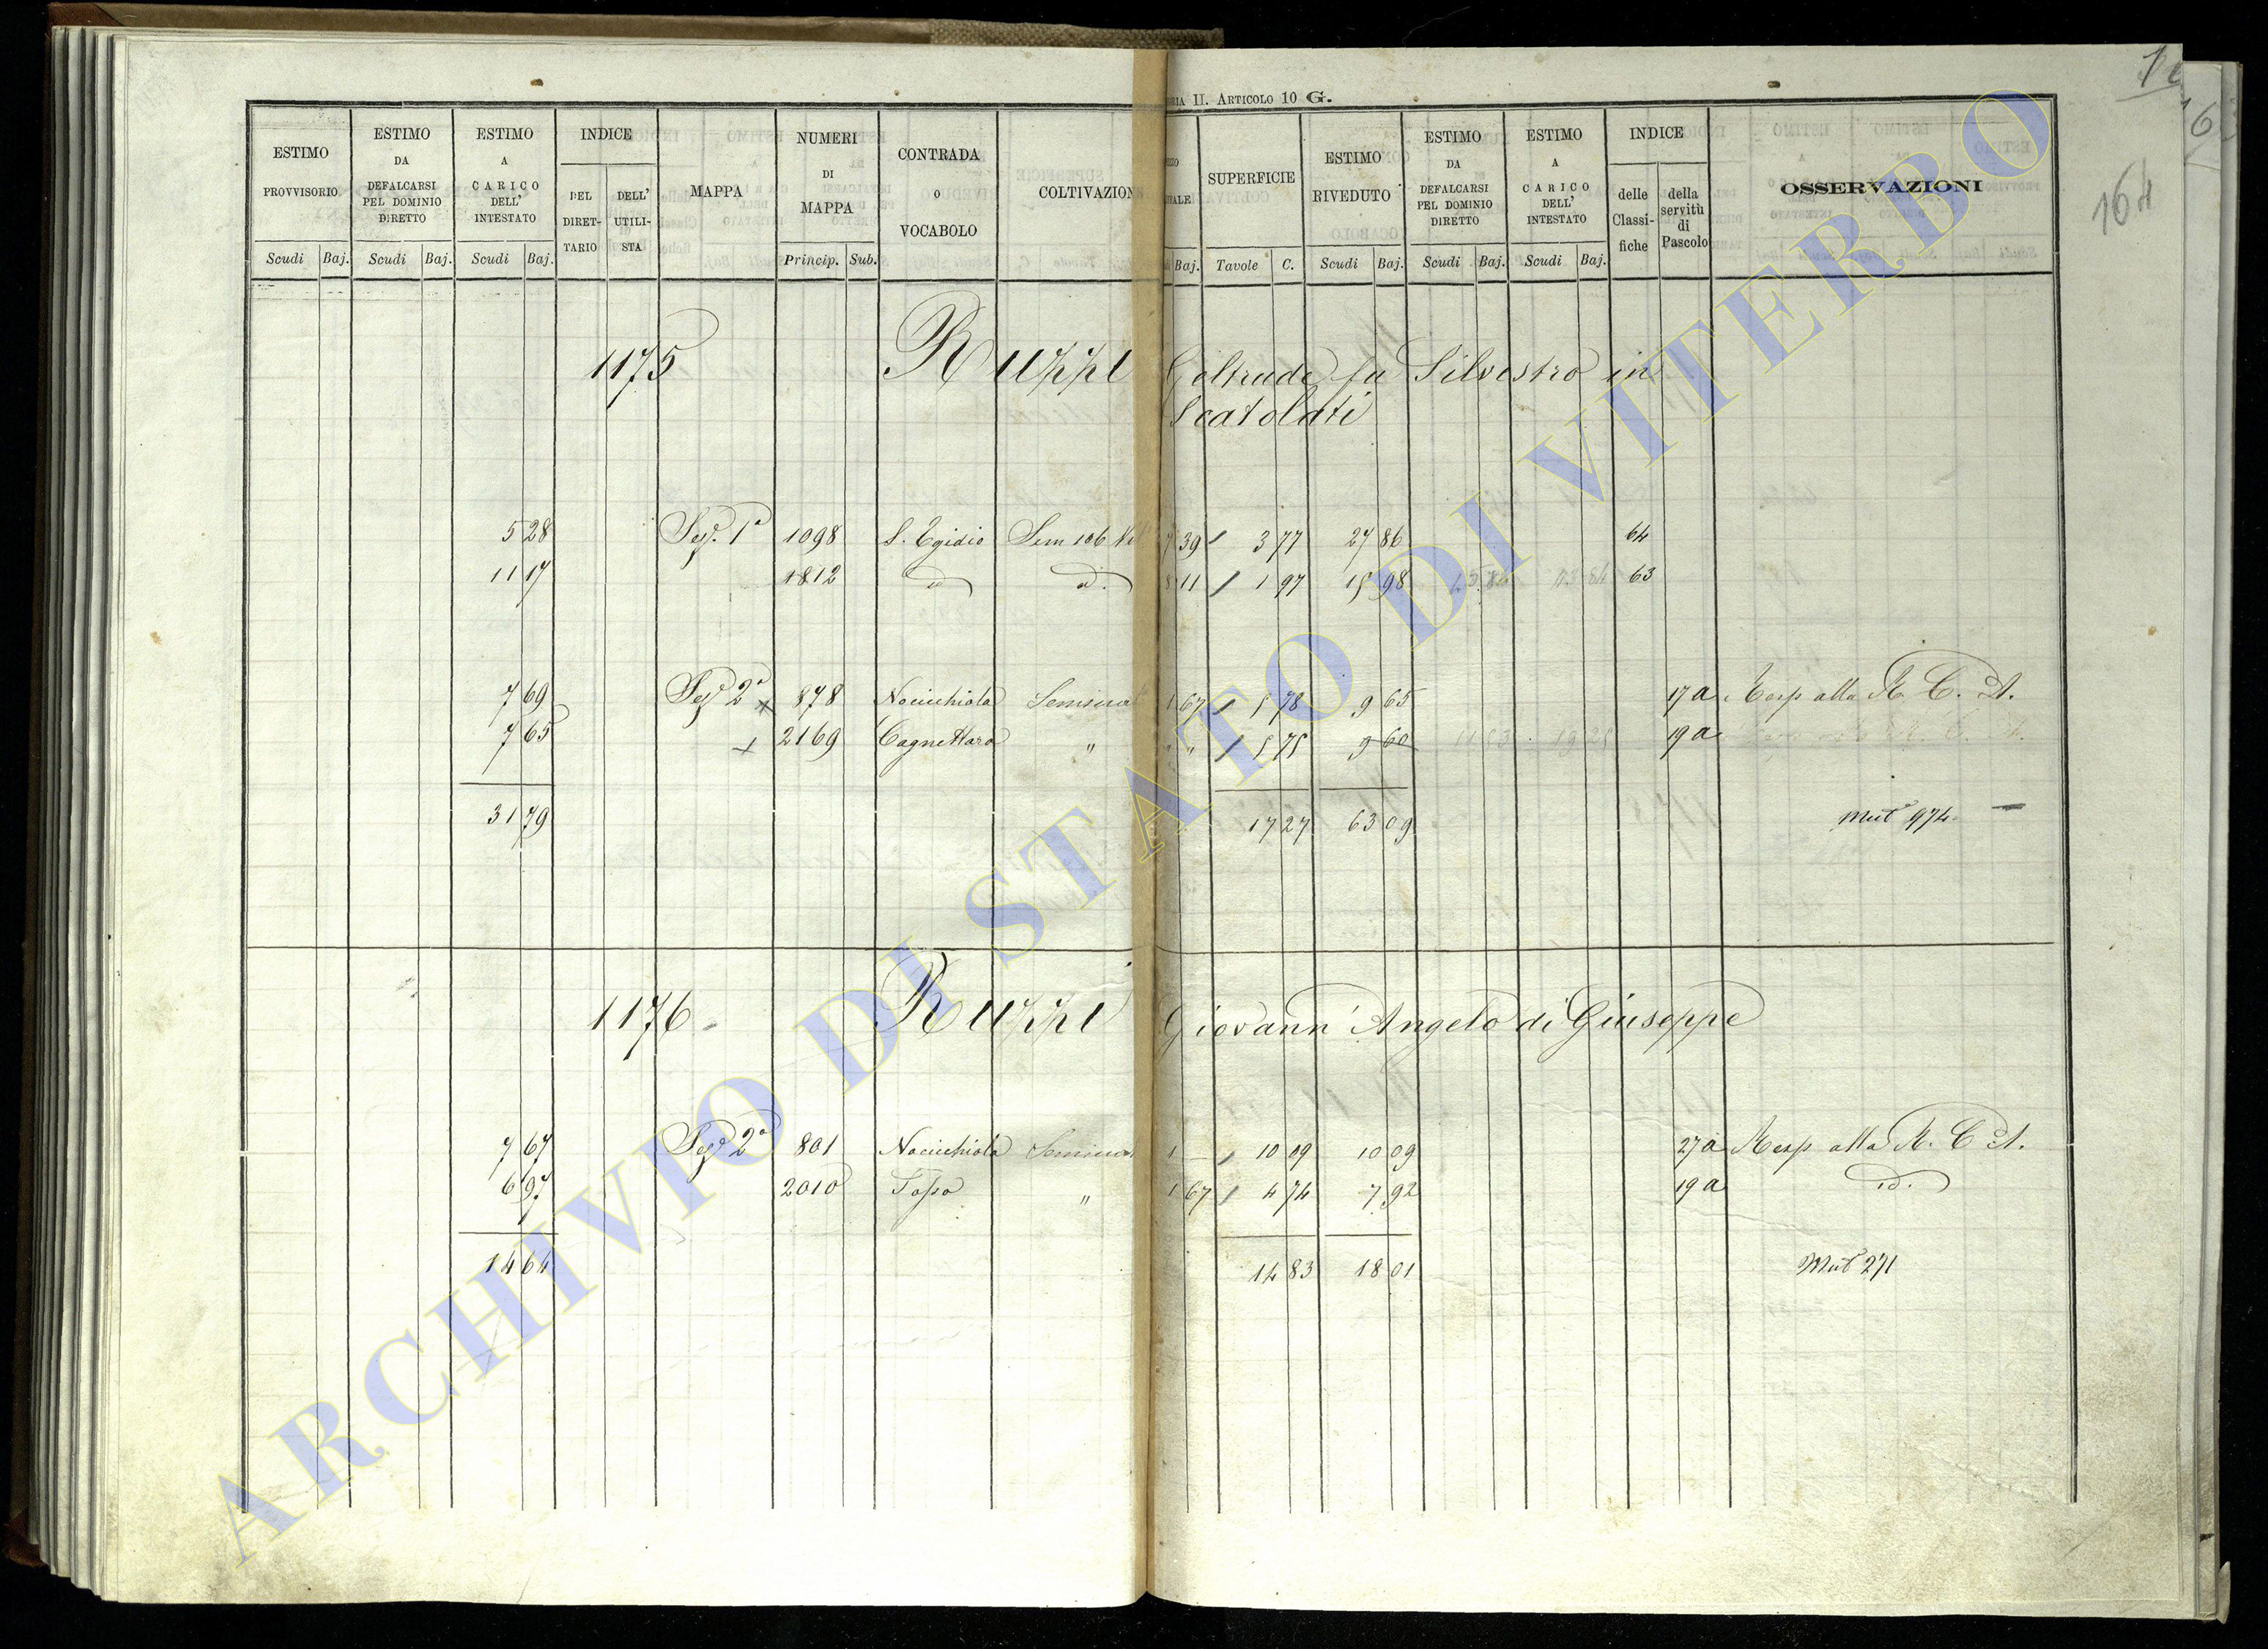 RIA II. ARTICOLO 10 G.
164
ESTIMO PROVVISORIO Scudi Baj.
ESTIMO DA DEFALCARSI PEL DOMINIO DIRETTO Scudi Baj.
ESTIMO A CARICO DELL' INTESTATO Scudi Baj.
INDICE DEL DIRETTARIO DELL' UTILISTA
MAPPA
NUMERI DI MAPPA Princip. Sub.
CONTRADA O VOCABOLO
COLTIVAZION
Baj.
SUPERFICIE Tavole C.
ESTIMO RIVEDUTO Scudi Baj.
ESTIMO DA DEFALCARSI PEL DOMINIO DIRETTO Scudi Baj.
ESTIMO A CARICO DELL' INTESTATO Scudi Baj.
INDICE delle Classifiche della servitù di Pascolo
OSSERVAZIONI
1175 Ruzzi Geltrude fu Silvestro in
Scatolati
5 28 Sez. 1ª 1098 S. Egidio Sem 7 39 3 77 27 86 64
11 17 1812 id id. 8 11 1 97 15 98 63
7 69 Sez 2ª 878 Nocicchiola Seminat 1 67 5 78 9 65 17 a Resp alla R. C. A.
7 65 2169 Cagnettara " " " 5 75 9 60 19 a
31 79 17 27 63 09 Mut 974
1176 Ruzzi Giovann'Angelo di Giuseppe
7 67 Sez 2ª 801 Nocicchiola Seminat 1 — 10 09 10 09 27 a Resp alla R. C A.
6 97 2010 Topo " 1 67 4 74 7 92 19 a id.
14 64 14 83 18 01 Mut 271
ARCHIVIO DI STATO DI VITERBO